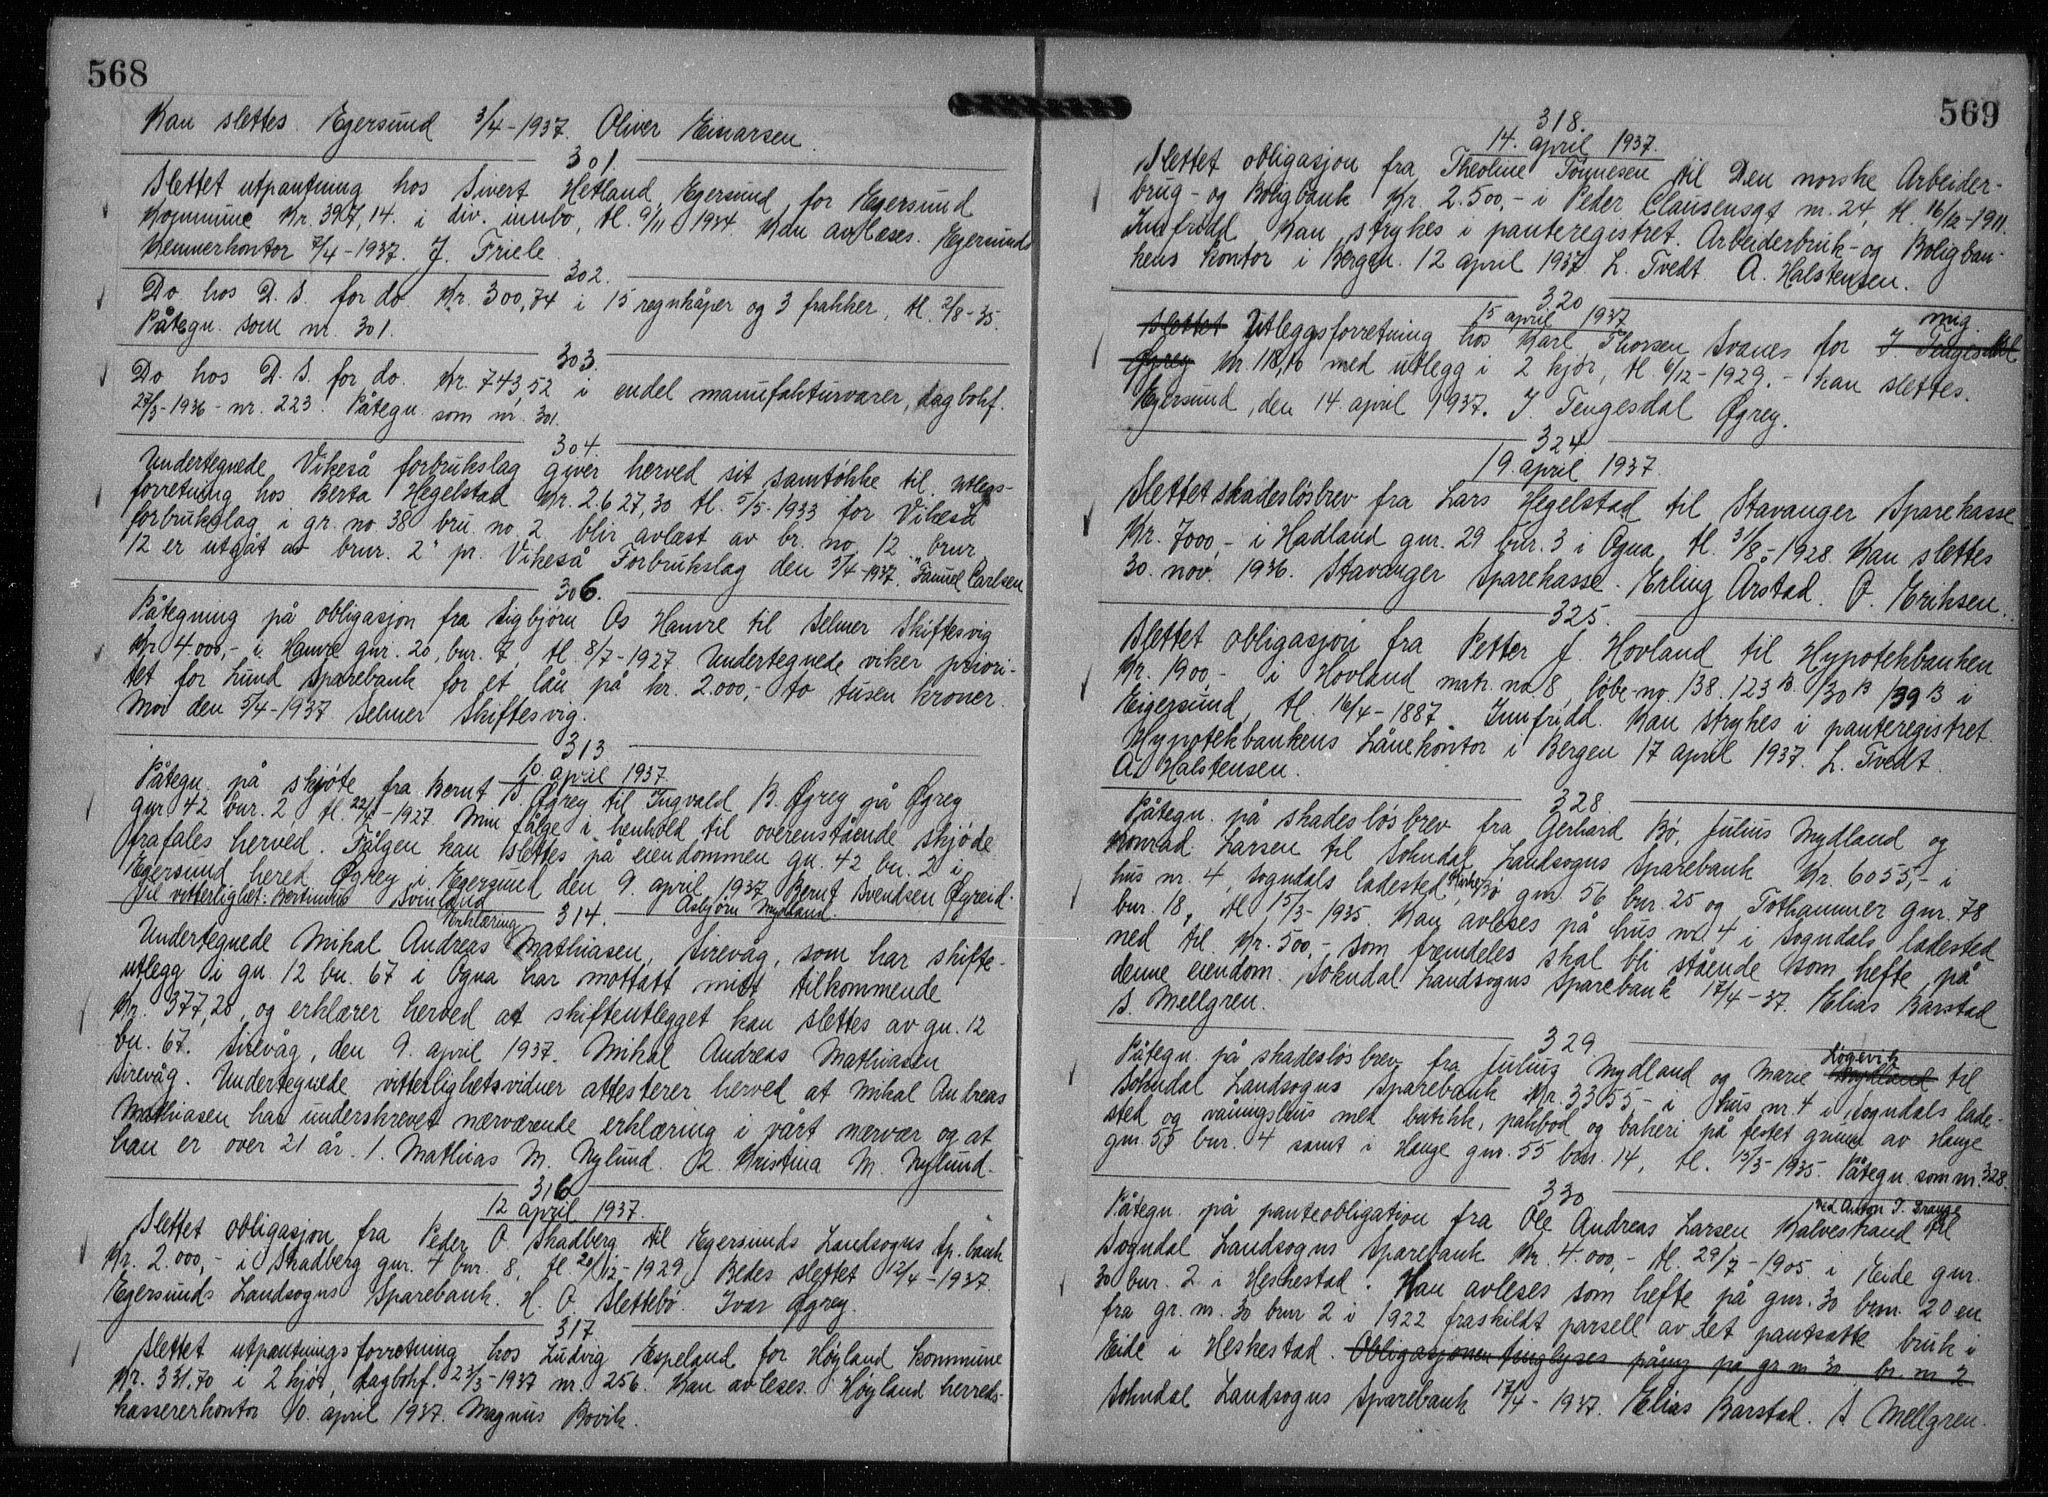 568
Kan slettes. Egersund 3/4-1937. Oliver Einarsen.
301.
Slettet utpantning hos Sivert Hetland, Egersund, for Egersund
Kommune Kr. 397,14. i div. innbo, tl. 9/11 1934. Kan avleses. Egersunds
Kemnerkontor 7/4-1937. J. Friele.
302.
Do. hos D. S. for do. Kr. 300,74 i 15 regnkåper og 3 frakker, tl. 2/8-35.
Påtegn. som nr. 301.
303.
Do hos D. S. for do. Kr. 743,52 i endel manufakturvarer, dagbohf.
27/3-1936 - nr. 223. Påtegn. som nr. 301.
304.
Undertegnede Vikeså forbrukslag giver herved sit samtökke til utlegs-
forretning hos Berta Hegelstad Kr. 2627,30 tl. 5/5-1933 for Vikeså
forbrukslag i gr. no 38 bru. no. 2 blir avlæst av br. no. 12. "brur
12 er utgåt av brur. 2" pr. Vikeså Forbrukslag den 3/4-1937. Samuel Carlsen
306.
Påtegning på obligasjon fra Sigbjörn Os Hamre til Selmer Skiftesvig
Kr 4000,- i Hamre gnr. 20, bnr. 7, tl. 8/7-1927. Undertegnede viker priori-
tet for Lund Sparebank for et lån på kr. 2.000,- to tusen kroner.
Moi den 5/4-1937 Selmer Skiftesvig.
313
10. april 1937.
Påtegn. på skjöte fra Bernt S. Øgrey til Ingvald B. Øgrey på Øgrey
gnr. 42 bnr. 2, tl. 22/4-1927. Min fölge i henhold til overenstående skjöde
frafales herved. Fölgen kan slettes på eiendommen gn. 42 bn. 2 i
Egersund hered. Øgrey i Egersund den 9. april 1937 Bernt Svendsen Øgreid.
Til vitterlighet: Bertinius Svinland Asbjörn Mydland.
Erklæring 314.
Undertegnede Mikal Andreas Mathiasen, Sirevåg, som har skifte-
utlegg i gn. 12 bn. 67 i Ogna har mottatt mitt tilkommende
Kr. 377,20, og erklærer herved at skifteutlegget kan slettes av gn. 12
bn. 67. Sirevåg, den 9. april 1937. Mikal Andreas Mathiasen
Sirevåg. Undertegnede vitterlighetsvidner attesterer herved at Mikal Andreas
Mathiasen har underskrevet nærværende erklæring i vårt nærvær og at
han er over 21 år. 1. Mathias M. Nylund. 2. Kristina M. Nylund.
316
12 april 1937.
Slettet obligasjon fra Peder O Skadberg til Egersunds Landsogns Sp.bank
Kr. 2.000,- i Skadberg gnr. 4 bnr. 8, tl. 20/12-1929. Bedes slettet 12/4-1937.
Egersunds Landsogns Sparebank. H. O. Slettebö. Ivar Øgrey.
317.
Slettet utpantningsforretning hos Ludvig Espeland for Höyland kommune
Kr. 331.70 i 2 kjör, dagbohf. 23/3-1937 nr. 256. Kan avleses. Höyland herreds-
kassererkontor 10. april 1937. Magnus Bovik.
569
318.
14. april 1937.
Slettet obligasjon fra Theoline Tönnesen til Den norske Arbeider-
brug- og Boligbank Kr. 2.500,- i Peder Clausensgt nr. 24, tl. 16/12-1911.
Innfridd Kan strykes i panteregistret. Arbeiderbruk- og Boligban-
kens kontor i Bergen. 12 april 1937. L. Tvedt A. Halstensen.
320
15 april 1937
Slettet Utleggsforretning hos Karl Thorsen Svanes for J. Tengesdal mig.
Øgrey Kr. 118,10 med utlegg i 2 kjör, tl. 6/12-1929.- kan slettes.
Egersund, den 14. april 1937. J. Tengesdal Øgrey.
324.
19. april 1937.
Slettet skadeslösbrev fra Lars Hegelstad til Stavanger Sparekasse
Kr. 7000,- i Hadland gnr. 29 bnr. 3 i Ogna, tl. 3/8-1928. Kan slettes
30. nov. 1936. Stavanger Sparekasse. Erling Årstad. O. Eriksen.
325.
Slettet obligasjon fra Petter J. Hovland til Hypotekbanken
Kr. 1900,- i Hovland matr. no 8, löbe-no. 138. 123 b. 130 B 139 B i
Eigersund, tl. 16/4-1887. Innfridd. Kan strykes i panteregistret
Hypotekbankens Lånekontor i Bergen 17 april 1937. L. Tvedt.
A. Halstensen.
328
Påtegn. på skadeslösbrev fra Gerhard Bö, Julius Mydland og
Konrad Larsen til Sohndal Landsogns Sparebank Kr. 6055,- i
hus nr. 4, Sogndals ladested, Bö gnr. 56 bnr. 25 og Tothammer gnr. 78
bnr. 18, tl. 15/3-1935. Kan avleses på hus nr. 4 i Sogndals ladested
ned til Kr. 500,- som fremdeles skal bli stående som hefte på
denne eiendom. Sokndal Landsogns Sparebank 17/4-37. Elias Barstad
S. Mellgren.
329.
Påtegn. på skadeslösbrev fra Julius Mydland og Marie Mydland Rögevik til
Sohndal Landsogns Sparebank Kr. 3355- i hus nr. 4 i Sogndals lade-
sted og våningshus med butikk, pakbod og bakeri på festet grunn av Hauge
gnr. 55 bnr. 4 samt i Hauge gnr. 55 bnr. 14, tl. 15/3-1935. Påtegn. som nr. 328.
330
Påtegn. på panteobligation fra Ole Andreas Larsen Kalvestrand ved Anton T. Drange til
Sogndal Landsogns Sparebank Kr. 4.000,- tl. 29/7-1905. i Eide gnr.
30 bnr. 2 i Heskestad. Kan avleses som hefte på gnr. 30 brnr. 20 en
fra gr. nr. 30 brnr 2 i 1922 fraskildt parsell av det pantsatte bruk i
Eide i Heskestad. Obligasjonen tinglyses påny på gr. nr 30 br. nr 2
Sohndal Landsogns Sparebank 17/4-1937. Elias Barstad. S. Mellgren.